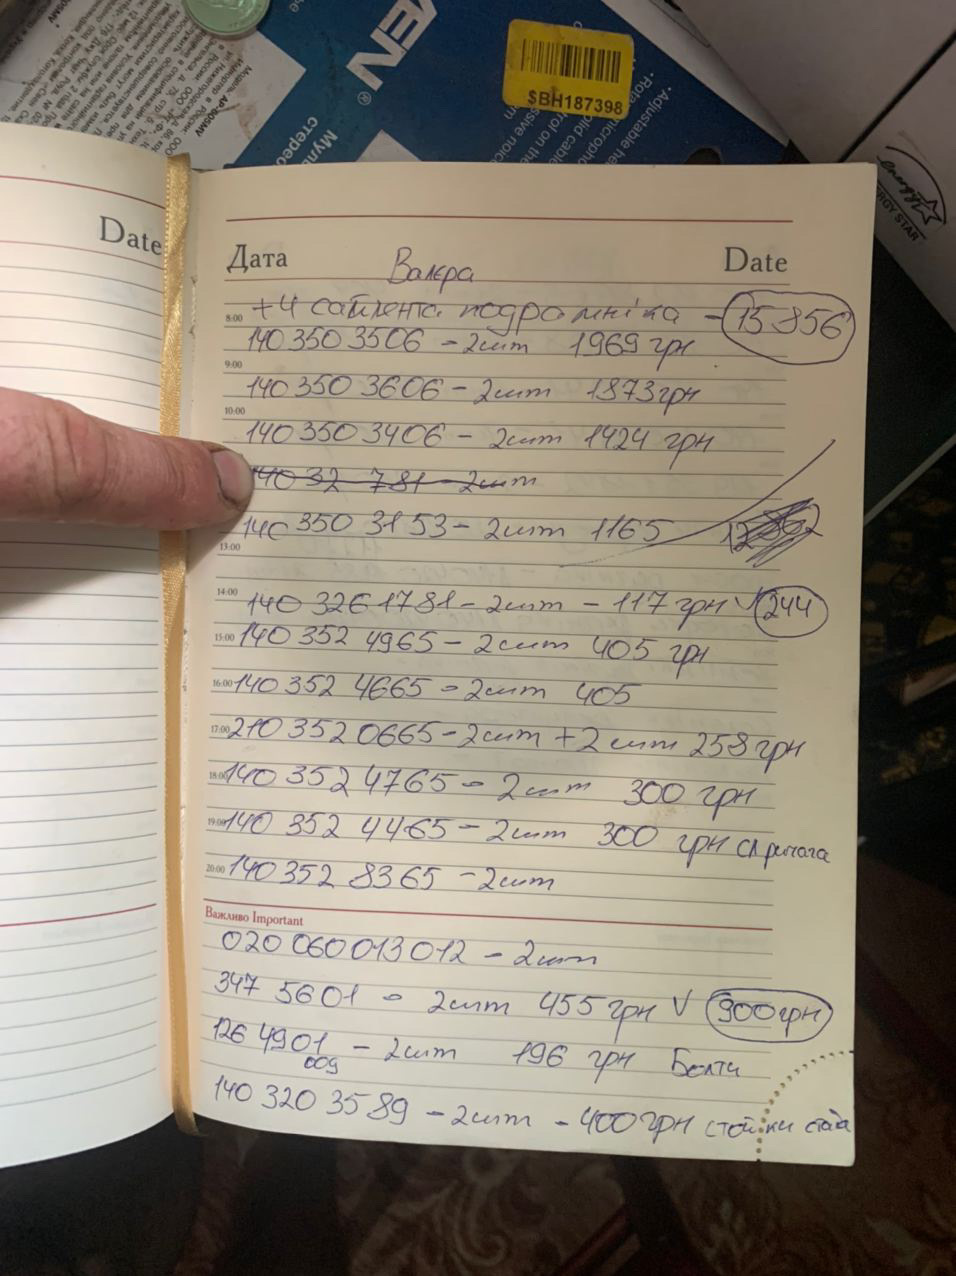 VEN®
$BH187398
стерео
Муль
Модель: AP-B05MV
· Adjustable he
ENERGY STAR
Date
Дата
Date
Валєра
8:00 +4 сайлента подрамніка - 15 856
140 350 3506 - 2шт 1969 грн
9:00
140 350 3606 - 2шт 1873 грн
10:00
140 350 3406 - 2шт 1424 грн
140 32 781 - 2шт
140 350 3153 - 2шт 1165
13:00
14:00 140 326 1781 - 2шт - 117 грн V 244
15:00 140 352 4965 - 2шт 405 грн
16:00 140 352 4665 - 2шт 405
17:00 210 352 0665 - 2шт + 2шт 258 грн
18:00 140 352 4765 - 2шт 300 грн
19:00 140 352 4465 - 2шт 300 грн
20:00 140 352 8365 - 2шт
Важливо Important
020 060 013 012 - 2шт
347 5601 - 2шт 455 грн V 900 грн
126 4901 - 2шт 196 грн Болти
009
140 320 3589 - 2шт - 400 грн стойки стаба